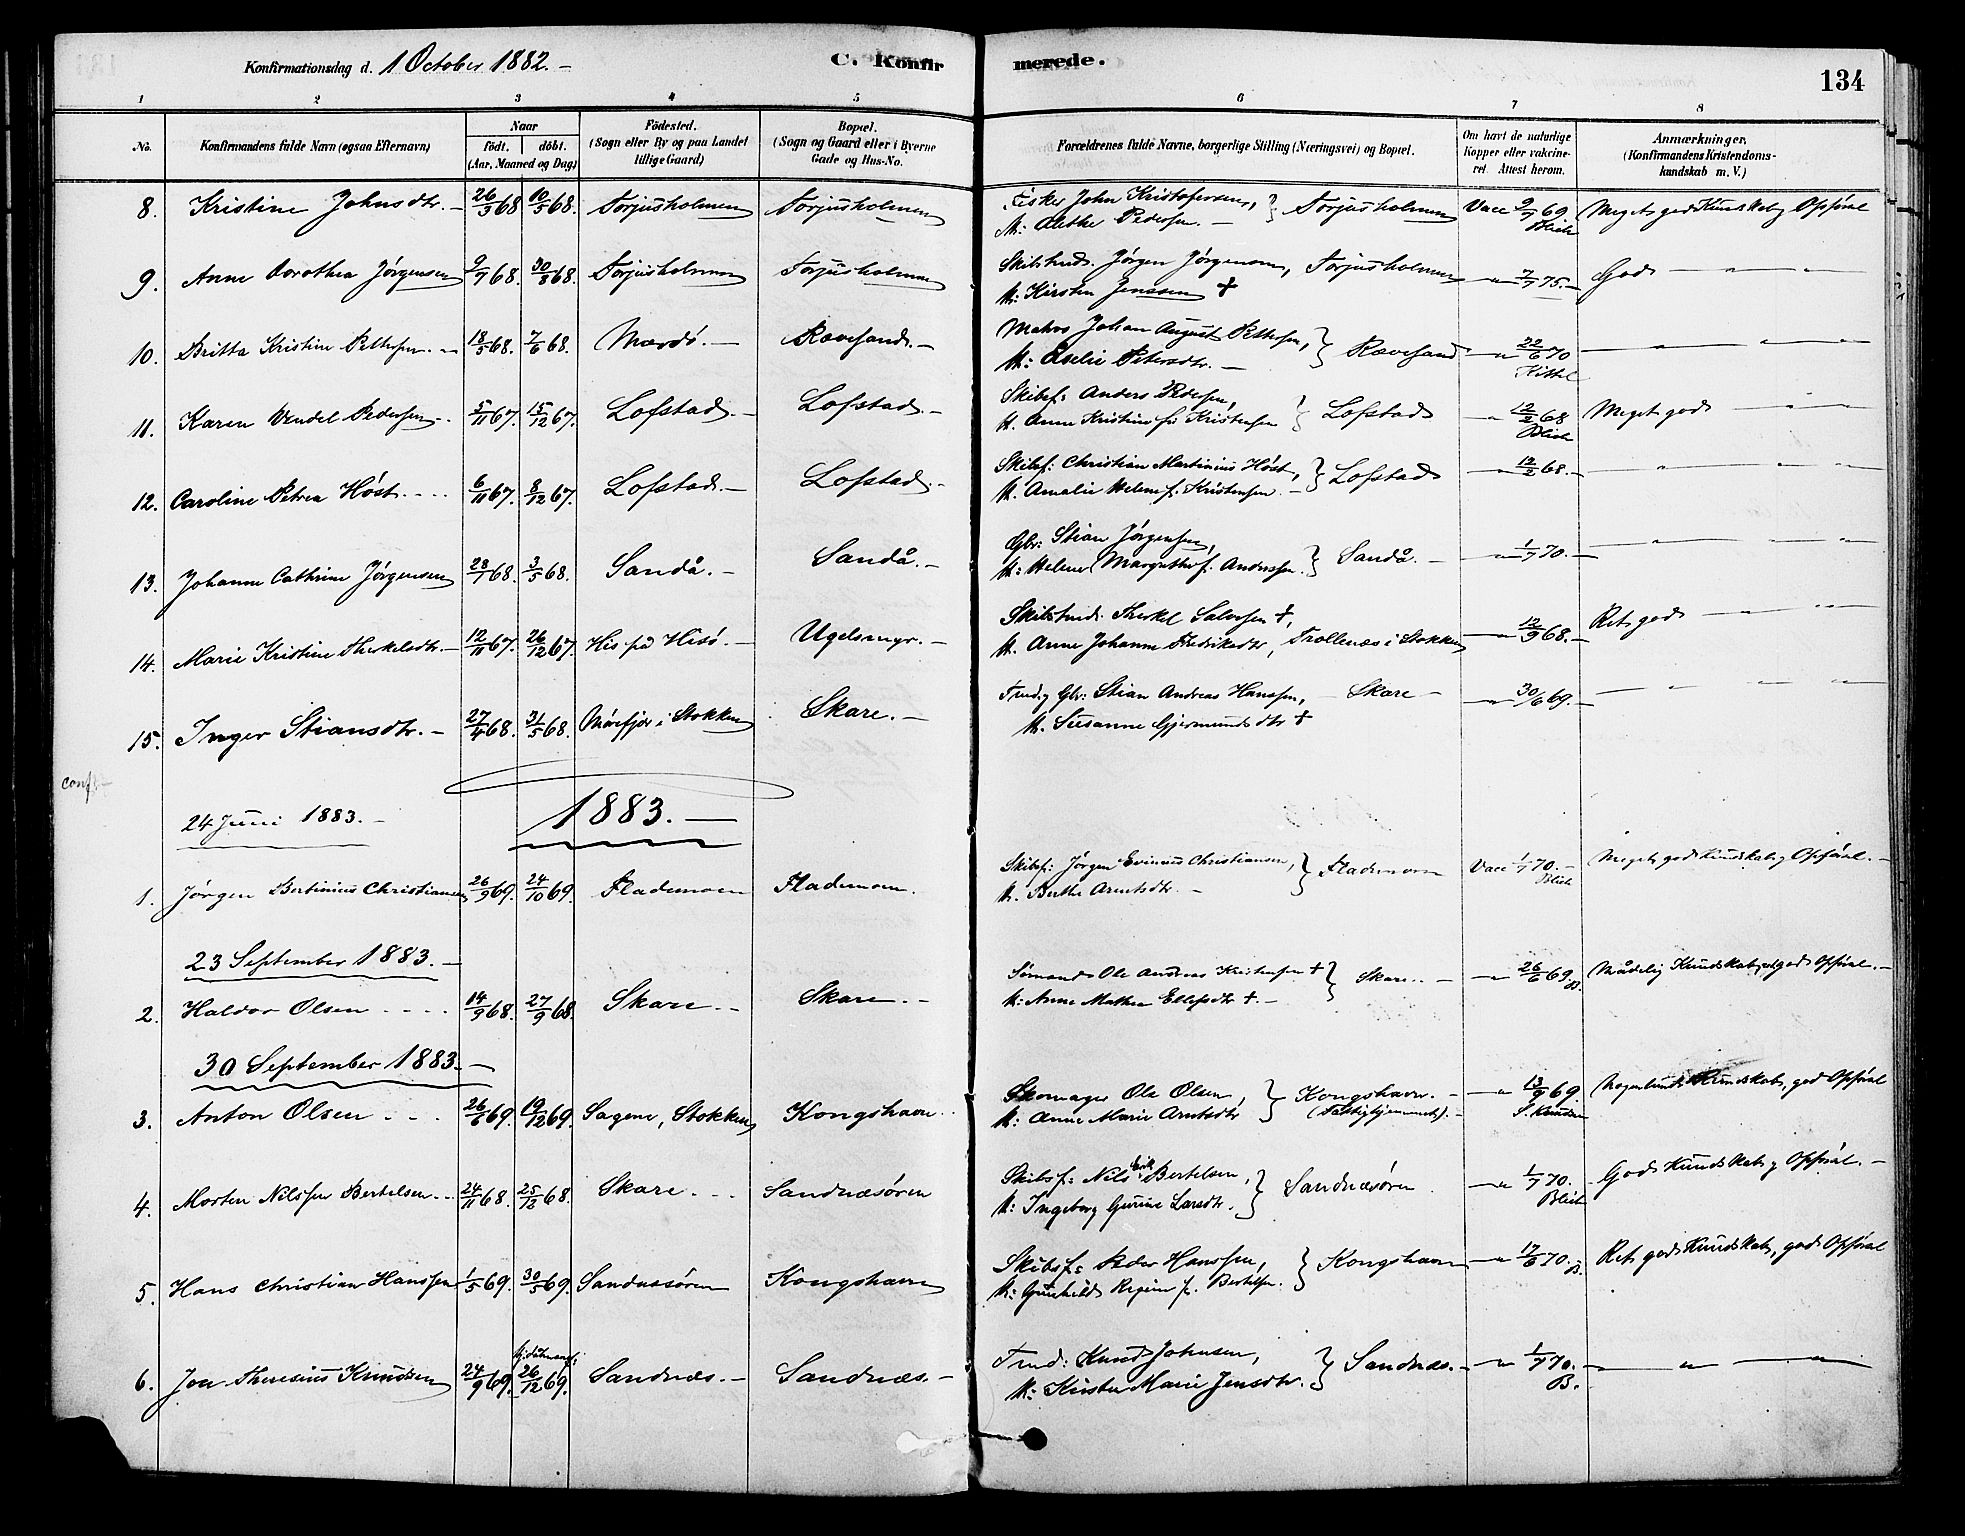 Konfirmationsdag d. 1 October 1882. –
C. Konfirmerede.
134
1 2 3 4 5 6 7 8
No. Konfirmandens fulde Navn (ogsaa Efternavn) Naar födt. döbt. (Aar, Maaned og Dag) Födested. (Sogn eller By og paa Landet tillige Gaard) Bopæl. (Sogn og Gaard eller i Byerne Gade og Hus-No. Forældrenes fulde Navne, borgerlige Stilling (Næringsvei) og Bopæl. Om havt de naturlige Kopper eller vakcineret. Attest herom. Anmærkninger. (Konfirmandens Kristendomskundskab m. V.)
8. Kristine Johnsdtr. – 26/3 68 10/5 68. Torjusholmen Torjusholmen Fisker John Kristofersen, } Torjusholmen Vacc 9/7 69. Meget god Kundskab og Opförsl
M: Alethe Pedersen. – Blich
9. Anne Dorothea Jörgensen 9/7 68. 30/8 68. Torjusholmen Torjusholmen Skibstmd. Jörgen Jörgensen, Torjusholmen – " 7/7 75. – God – " – "
M: Kirsten Jenssen †
10. Britta Kristine Pettersen. – 18/5 68. 7/6 68. Mærdö. – Rævesand. – Matros Johan August Pettersen, } Rævesand – " 22/6 70 – " – " –
M: Elelie Petersdtr. – Kittel
11. Karen Wendel Pedersen. – 5/11 67. 15/12 67. Lofstad. – Lofstad. – Skibsf: Anders Pedersen, } Lofstad – " 12/2 68 Meget god – " –
M. Anne Kristine f. Kristensen Blich
12. Caroline Petrea Höst. – – 6/11 67. 8/12 67. Lofstad. – Lofstad. – Skibsf: Christian Martinius Höst, } Lofstad – " 12/2 68. – – " – " –
M. Amalie Helene f. Kristensen. –
13. Johanne Cathrine Jörgensen 28/1 68. 3/5 68. Sandå. – Sandå. – Gbr: Stian Jörgensen, } Sandå. – – " 1/7 70. – – " – " –
M: Helene Margrethe f. Andersen.
14. Marie Kristine Therkelsdtr. – 12/11 67. 26/12 67. His på Hisö. – Ugelsmyr. – Skibstmd. Therkel Salvesen †, – " 12/9 68. – Ret god – " – "
M. Anne Johanne Fredriksdtr, Trollenæs i Stokken
15. Inger Stiansdtr. – 27/4 68. 31/5 68. Mörefjær i Stokken Skare. – Tmd. og Gbr: Stian Andreas Hanssen, – Skare – – " 30/6 69. – – " – " –
M. Susanne Gjermundsdtr †
conf. –
24 Juni 1883. –
1883. –
1. Jörgen Bertinius Christiansen 26/9 69. 24/10 69. Flademoen Flademoen. Skibsf: Jörgen Evinius Christiansen, } Flademoen Vacc 1/7 70. – Meget god Kundskab og Opförsl. –
M. Berthe Arntsdtr. – Blich
23 September 1883. –
2. Haldor Olsen – – – 14/9 68. 27/9 68. Skare. – Skare. – Sömand Ole Andreas Kristensen † } Skare. – – " 26/6 69. B. Mådelig Kundskab, god Opförsl. –
M: Anne Mathea Ellefsdtr †. –
30 September 1883. –
3. Anton Olsen – – – 26/6 69. 19/12 69. Sagene, Stokken Kongshavn. Skomager Ole Olsen, } Kongshavn. – – " 13/9 69. Nogenlunde Kundskab, god Opförsl
M: Anne Marie Arntsdtr (Fattighjemmet). – S. Knudsen
4. Morten Nilssen Bertelsen. – 24/11 68. 25/12 68. Skare. – Sandnæsören Skibsf: Nils Erik Bertelsen, } Sandnæsören – " 1/7 70. God Kundskab og Opförsl. –
M: Ingeborg Gurine Larsdtr. Blich
5. Hans Christian Hanssen 1/5 69. 30/5 69. Sandnæsören Kongshavn Skibsf: Peder Hanssen, } Kongshavn – " 17/6 70. B. Ret god Kundskab, god Opförsl
M: Gunhild Regine f. Bertelsen.
6. Joa Theresius Knudsen 24/9 69. Hj.döbt 26/12 69. Sandnæs. – Sandnæs. – Tmd: Knud Johnsen, } Sandnæs. – – " 1/7 70. – – " – " –
M: Kirsten Marie Jensdtr. B.